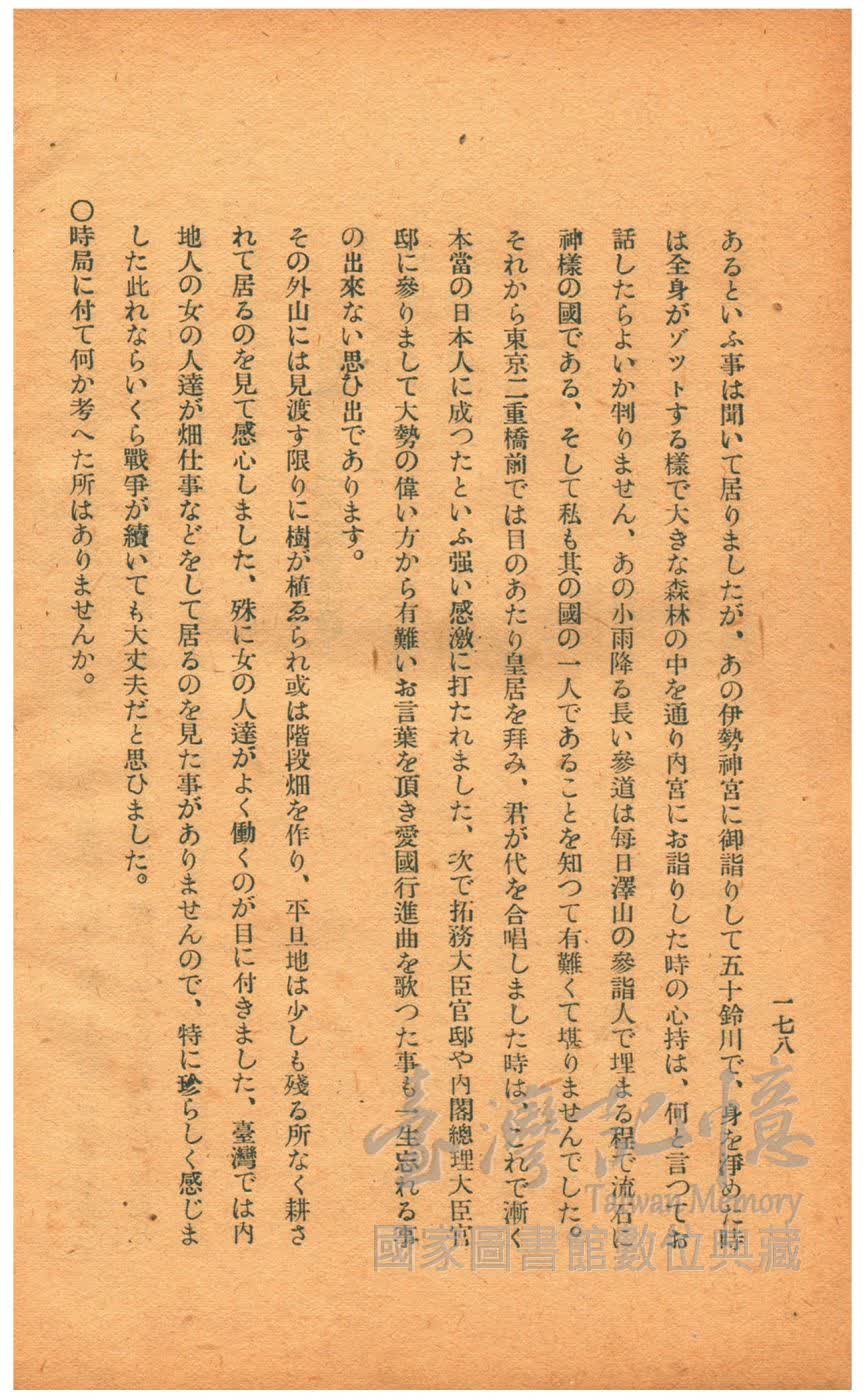 一七八
あるといふ事は聞いて居りましたが、あの伊勢神宮に御詣りして五十鈴川で、身を淨めた時
は全身がゾットする樣で大きな森林の中を通り內宮にお詣りした時の心持は、何と言つてお
話したらよいか判りません、あの小雨降る長い參道は每日澤山の參詣人で埋まる程で流石に
神樣の國である、そして私も其の國の一人であることを知つて有難くて堪りませんでした。
それから東京二重橋前では目のあたり皇居を拜み、君が代を合唱しました時は、これで漸く
本當の日本人に成つたといふ强い感激に打たれました、次で拓務大臣官邸や內閣總理大臣官
邸に參りまして大勢の偉い方から有難いお言葉を頂き愛國行進曲を歌つた事も一生忘れる事
の出來ない思ひ出であります。
その外山には見渡す限りに樹が植ゑられ或は階段畑を作り、平旦地は少しも殘る所なく耕さ
れて居るのを見て感心しました、殊に女の人達がよく働くのが目に付きました、臺灣では內
地人の女の人達が畑仕事などをして居るのを見た事がありませんので、特に珍らしく感じま
した此れならいくら戰爭が續いても大丈夫だと思ひました。
〇時局に付て何か考へた所はありませんか。
臺灣記憶
Taiwan Memory
國家圖書館數位典藏